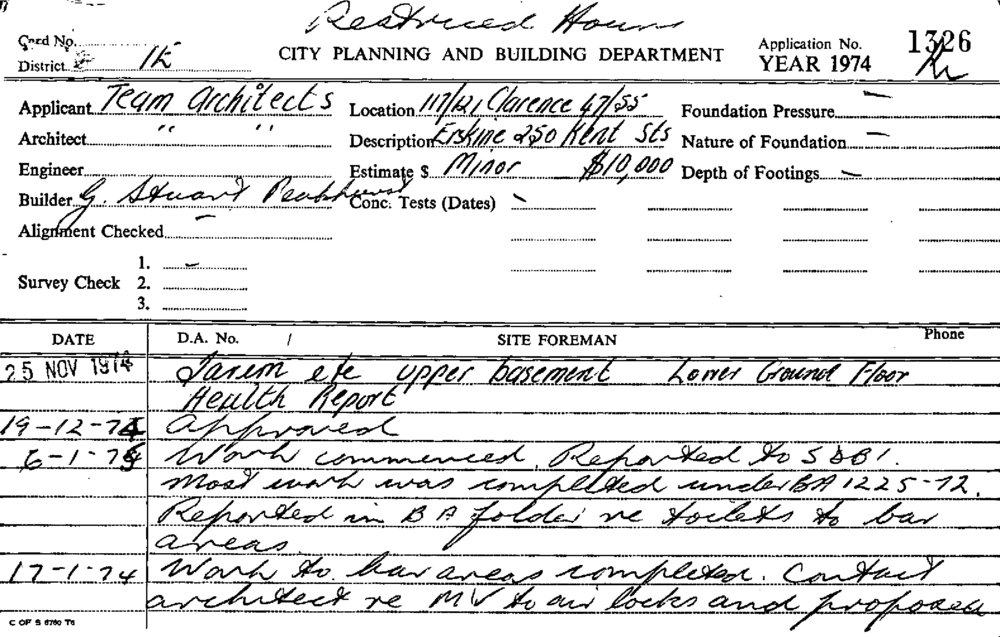 Restricted Hours
Card No.
District 1E
CITY PLANNING AND BUILDING DEPARTMENT
Application No. 1326
YEAR 1974
Applicant Team Architects
Location 117/121 Clarence 47/55
Foundation Pressure –
Architect " "
Description Erskine 250 Kent Sts
Nature of Foundation –
Engineer
Estimate $ Minor $10,000
Depth of Footings –
Builder G. Stuart
Conc. Tests (Dates) –
Alignment Checked –
Survey Check 1. –
2.
3.
DATE D.A. No. / SITE FOREMAN Phone
25 NOV 1974 Tavern etc upper basement Lower Ground Floor
Health Report
19-12-74 Approved
6-1-75 Work commenced. Reported to SDBI.
Most work was completed under BA 1225-72.
Reported in BA folder re toilets to bar
areas.
17-1-74 Work to bar areas completed. Contact
architect re MV to air locks and proposed
C OF S 6760 T6